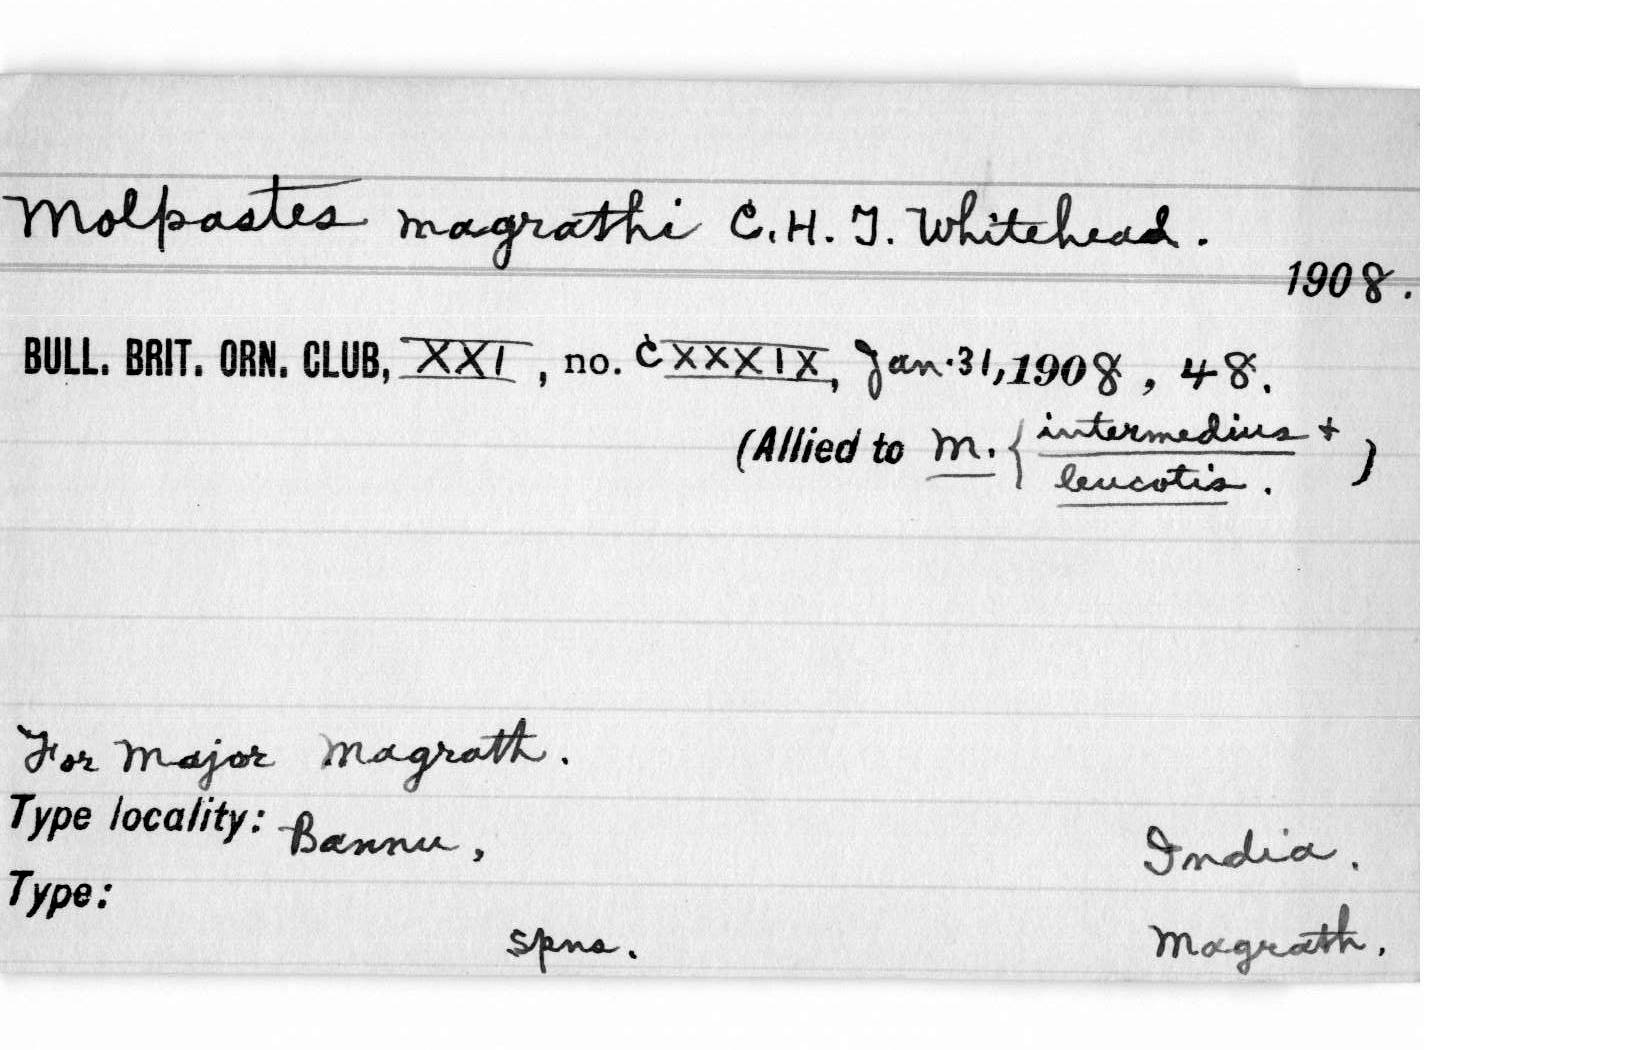 Molpastes magrathi C. H. T. Whitehead.
1908.
BULL. BRIT. ORN. CLUB, XXI, no. CXXXIX, Jan. 31, 1908, 48.
(Allied to M. { intermedius +
leucotis. )
For Major Magrath.
Type locality: Bannu, India.
Type:
spns. Magrath.